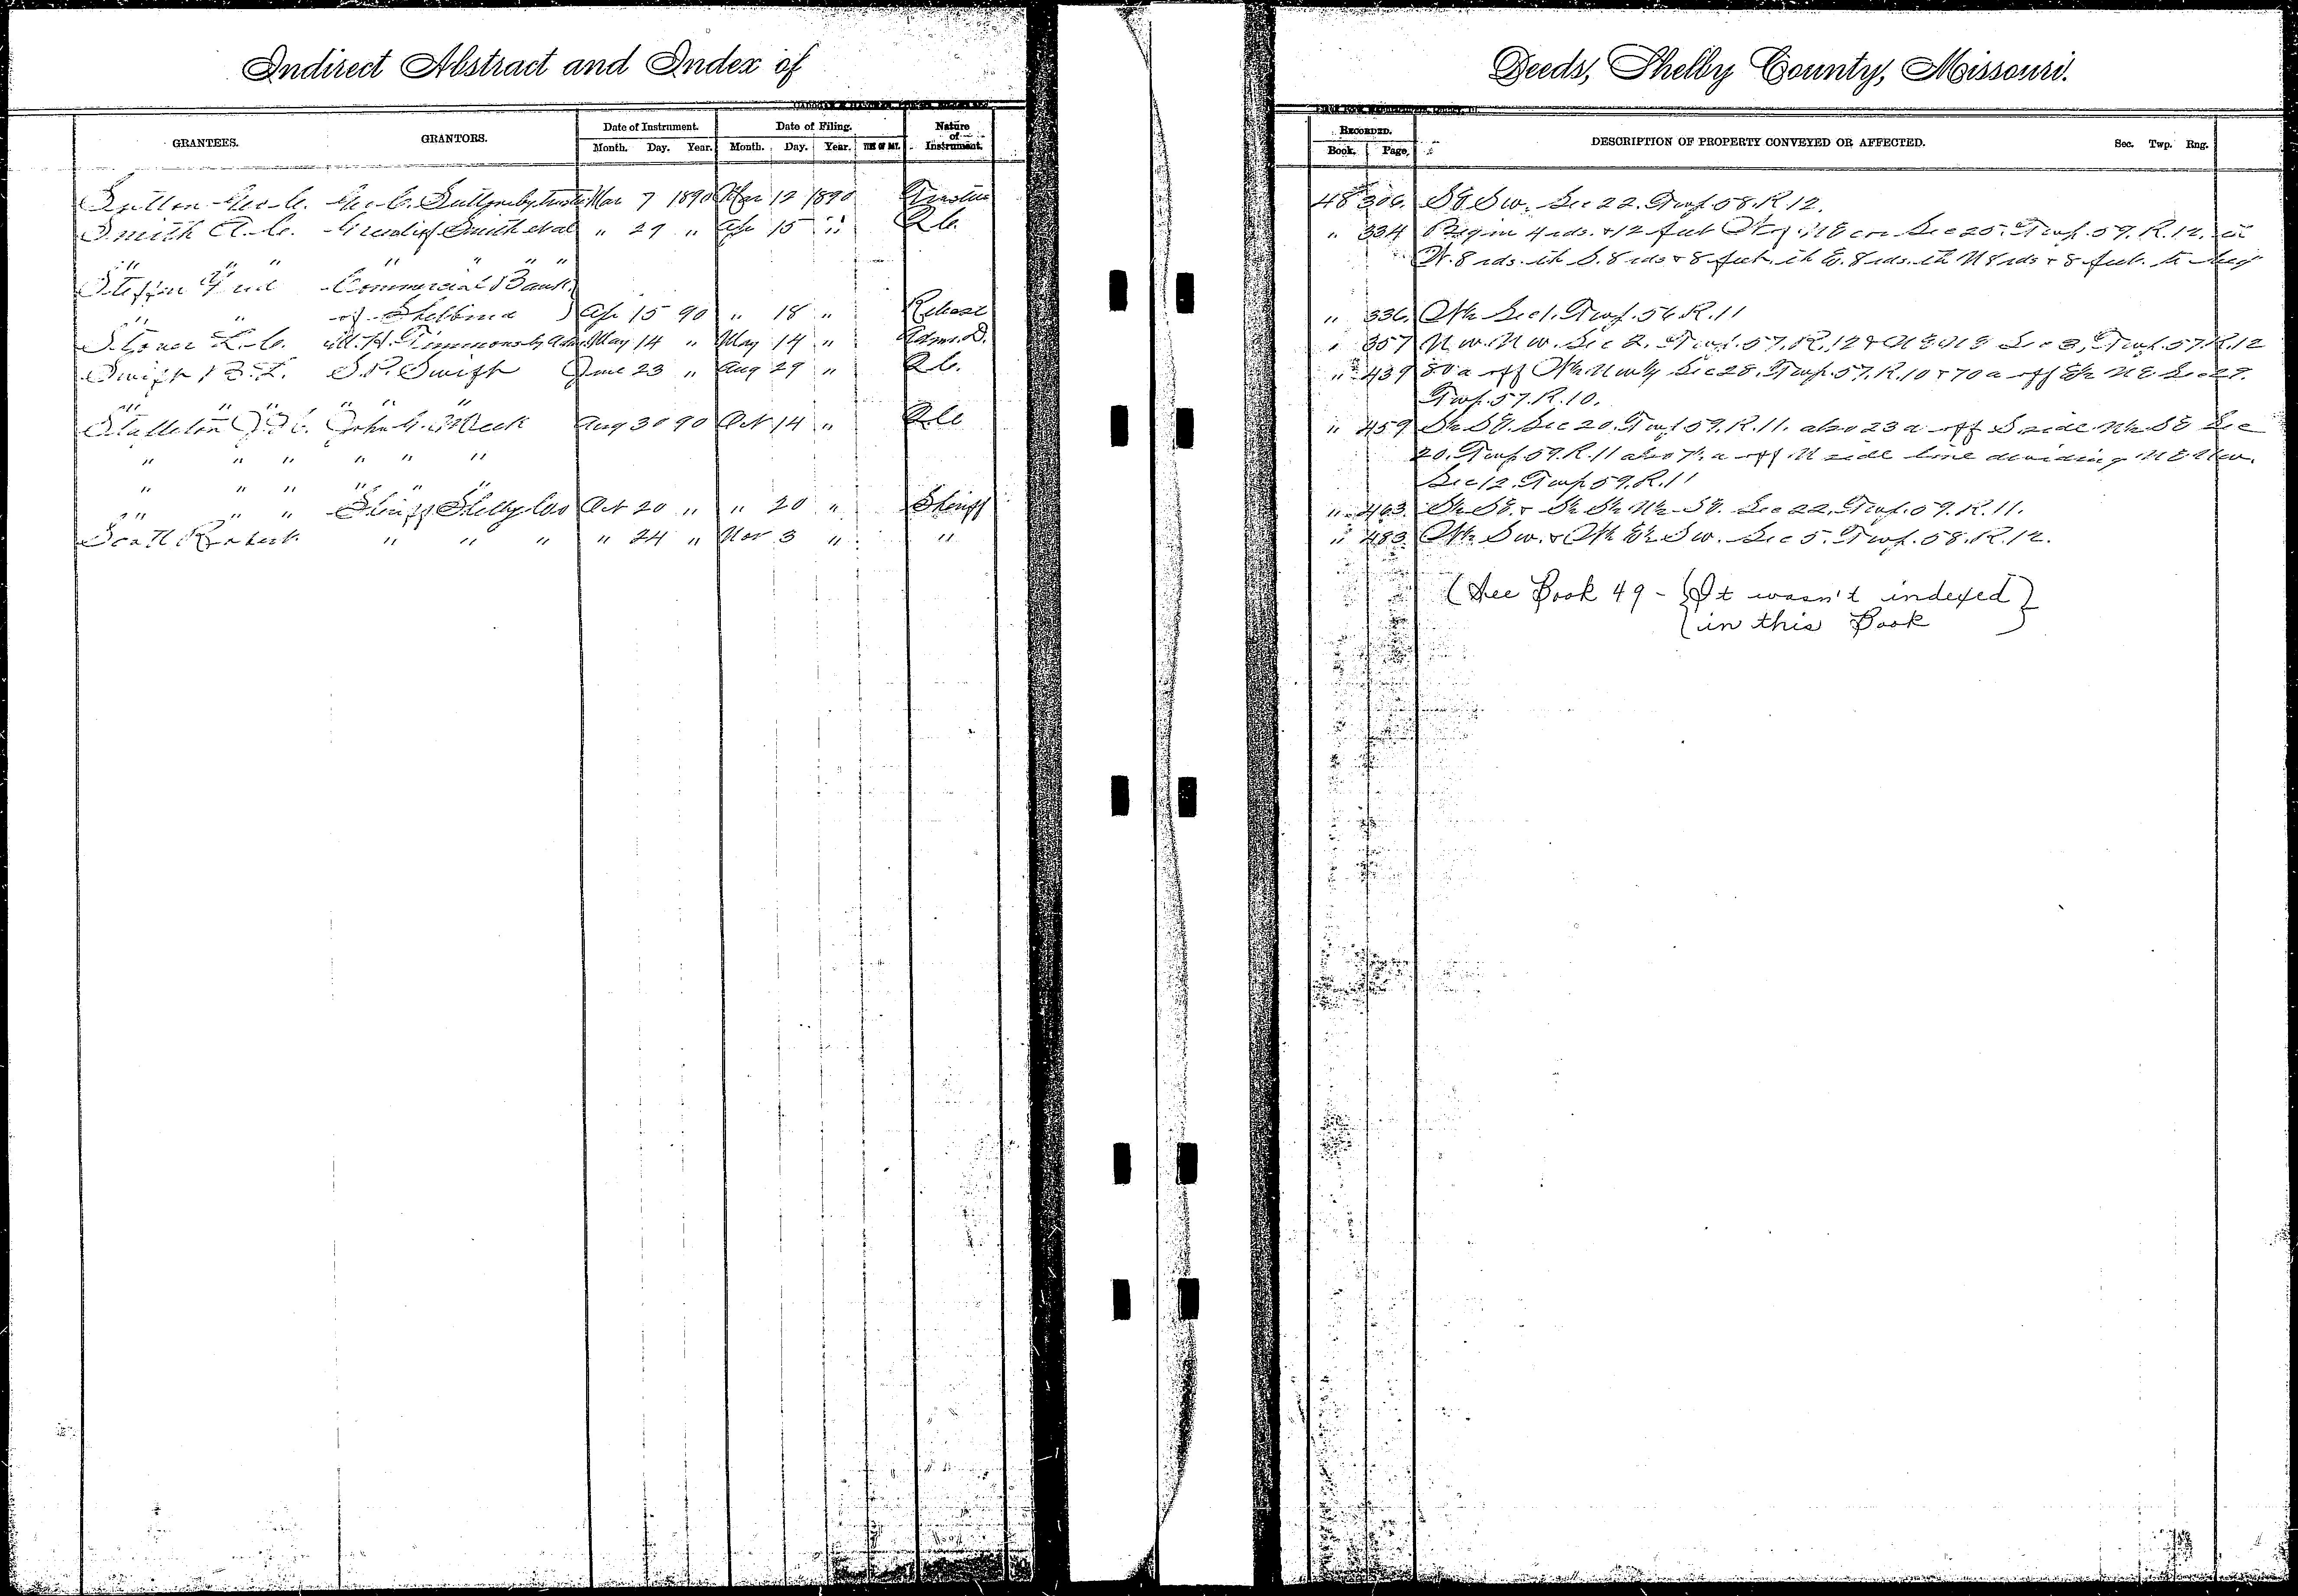 Indirect Abstract and Index of
Deeds, Shelby County, Missouri.
GRANTEES. GRANTORS. Date of Instrument. Month. Day. Year. Date of Filing. Month. Day. Year. Nature of Instrument.
RECORDED. Book. Page. DESCRIPTION OF PROPERTY CONVEYED OR AFFECTED. Sec. Twp. Rng.
Sutton Geo. C. Geo. C. Sutton by Mar 7 1890 Mar 12 1890 Trustee 48 306. SE Sw. Sec 22. Twp. 58. R. 12.
Smith A. C. Smith et al " 29 " Apr 15 " Q.C. " 334 Begin 4 rds. & 12 feet W of NE cor Sec 25. Twp. 59. R. 12. th
" " " " " " " W. 8 rds. th S. 8 rds & 8 feet. th E. 8 rds. th N 8 rds & 8 feet. to beg
Commercial Bank
" " of Shelbina Apr 15 90 " 18 " Release " 336. W½ Sec 1. Twp. 56. R. 11
Stoner L. C. H. Timmons by Adm. May 14 " May 14 " Adms. D. " 357 Nw. Nw. Sec 2. Twp. 57. R. 12 & NE NE Sec 3, Twp. 57. R. 12
Swift B. S. P. Swift June 23 " Aug 29 " Q.C. " 439 80 a off W½ Nw¼ Sec 28. Twp. 57. R. 10 & 70 a off E½ NE Sec 29.
" " " " " " Twp. 57. R. 10.
John Aug 30 90 Oct 14 " Q.C. " 459 S½ SE. Sec 20. Twp 59. R. 11. also 23 a off S side N½ SE Sec
" " " " " " 20. Twp 59. R. 11 also a off N side line dividing NE Nw.
" " " " " " Sec 12. Twp 59. R. 11
" " " Sheriff Shelby Co Oct 20 " " 20 " Sheriff " 463. S½ SE. & S½ S½ N½ SE. Sec 22. Twp. 59. R. 11.
Scott " " " " 24 " Nov 3 " " " 483. W½ Sw. & W½ E½ Sw. Sec 5. Twp. 58. R. 12.
(See Book 49 - {It wasn't indexed}
{in this Book}